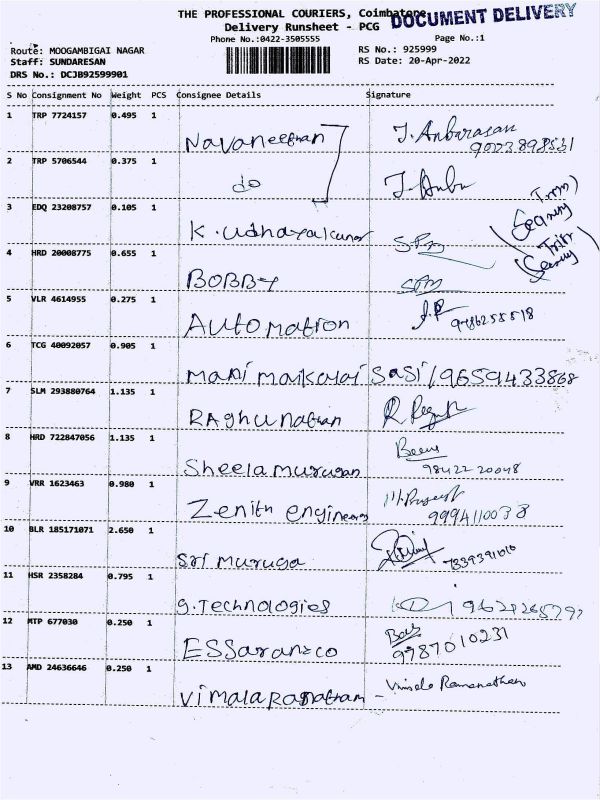 THE PROFESSIONAL COURIERS, Coimbatore
DOCUMENT DELIVERY
Delivery Runsheet - PCG
Phone No.:0422-3505555
Page No.:1
Route: MOOGAMBIGAI NAGAR
RS No.: 925999
Staff: SUNDARESAN
RS Date: 20-Apr-2022
DRS No.: DCJB92599901
S No Consignment No Weight PCS Consignee Details Signature
1 TRP 7724157 0.495 1
Navaneethan J. Anbarasan
9003898531
2 TRP 5706544 0.375 1
do J. Anbu
3 EDQ 23208757 0.105 1
K. Udhayakumar
Security
4 HRD 20008775 0.655 1
BOBBY
Security
5 VLR 4614955 0.275 1
Automation 9786255518
6 TCG 40092057 0.905 1
Mani maikalai Sasi / 9659433868
7 SLM 293880764 1.135 1
RAghunathan
8 HRD 722847056 1.135 1
Sheela murugan 98422 20048
9 VRR 1623463 0.980 1
Zenith engineers 9994110038
10 BLR 185171071 2.650 1
Sri muruga 7339391010
11 HSR 2358284 0.795 1
g. Technologies
12 MTP 677030 0.250 1
ESSaran&co 9787010231
13 AMD 24636646 0.250 1
Vimala Ramanathan - Vimala Ramanathan